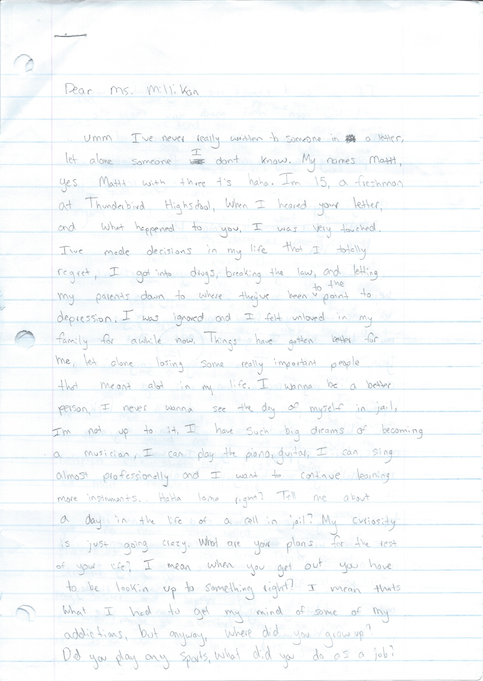 Dear Ms. Millikan
Umm I've never really written to someone in a letter,
let alone someone I dont know. My names Mattt,
yes Mattt with three t's haha. I'm 15, a freshman
at Thunderbird Highschool, When I heared your letter,
and what happened to you, I was very touched.
I've made decisions in my life that I totally
regret, I got into drugs, breaking the law, and letting
my parents down to where they've been to the point to
depression. I was ignored and I felt unloved in my
family for awhile now. Things have gotten better for
me, let alone losing some really important people
that meant alot in my life. I wanna be a better
person, I never wanna see the day of myself in jail,
Im not up to it, I have such big dreams of becoming
a musician, I can play the piano, guitar, I can sing
almost professionally and I want to continue learning
more instruments. Haha lame right? Tell me about
a day in the life of a cell in jail? My curiosity
is just going crazy. What are your plans for the rest
of your life? I mean when you get out you have
to be lookin up to something right? I mean thats
what I had to get my mind of some of my
addictions, but anyway, where did you grow up?
Did you play any sports, what did you do as a job?